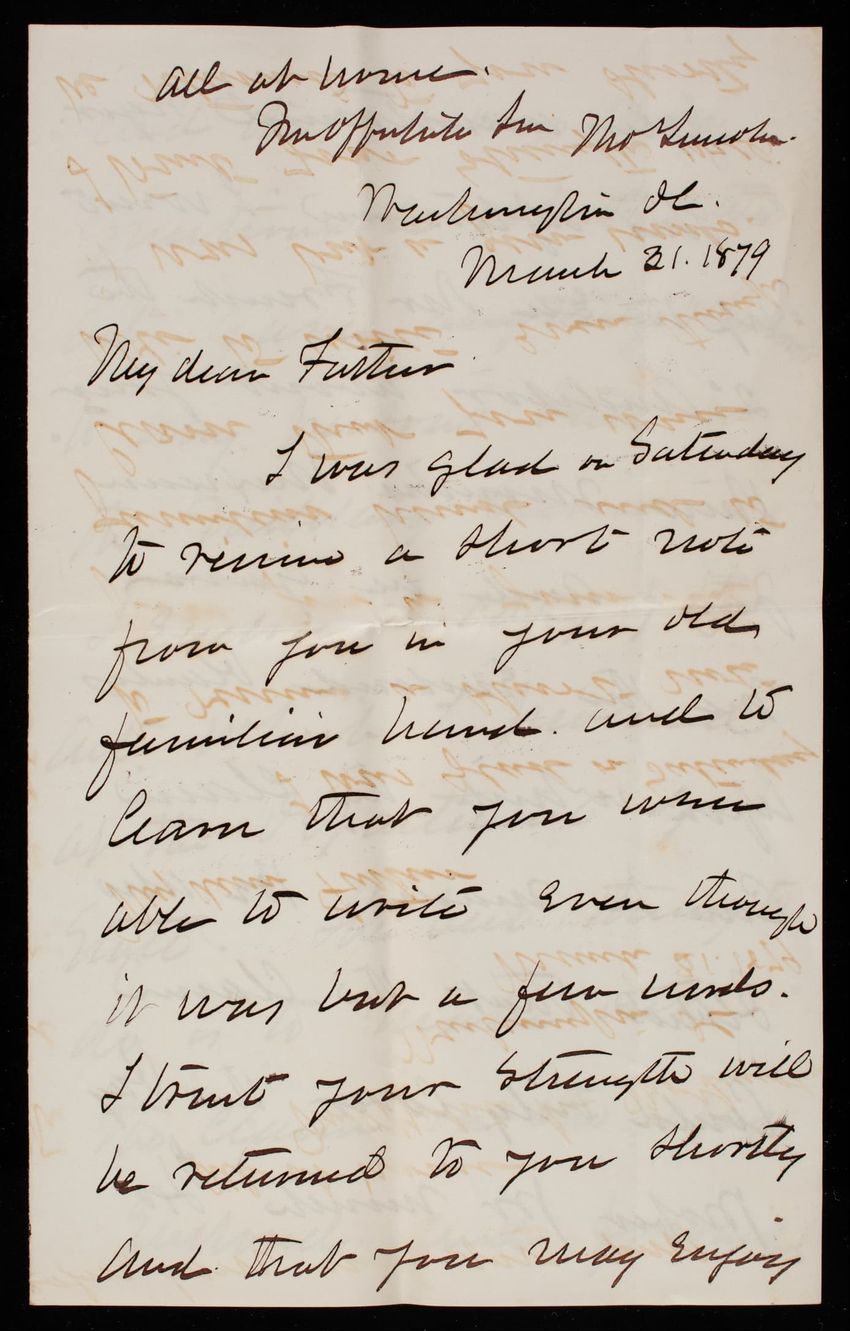 all at home.
Washington DC.
March 31. 1879
My dear Father
I was glad on Saturday
to receive a short note
from you in your old
familiar hand. and to
learn that you were
able to write even though
it was but a few words.
I trust your strength will
be returned to you shortly
and that you may enjoy